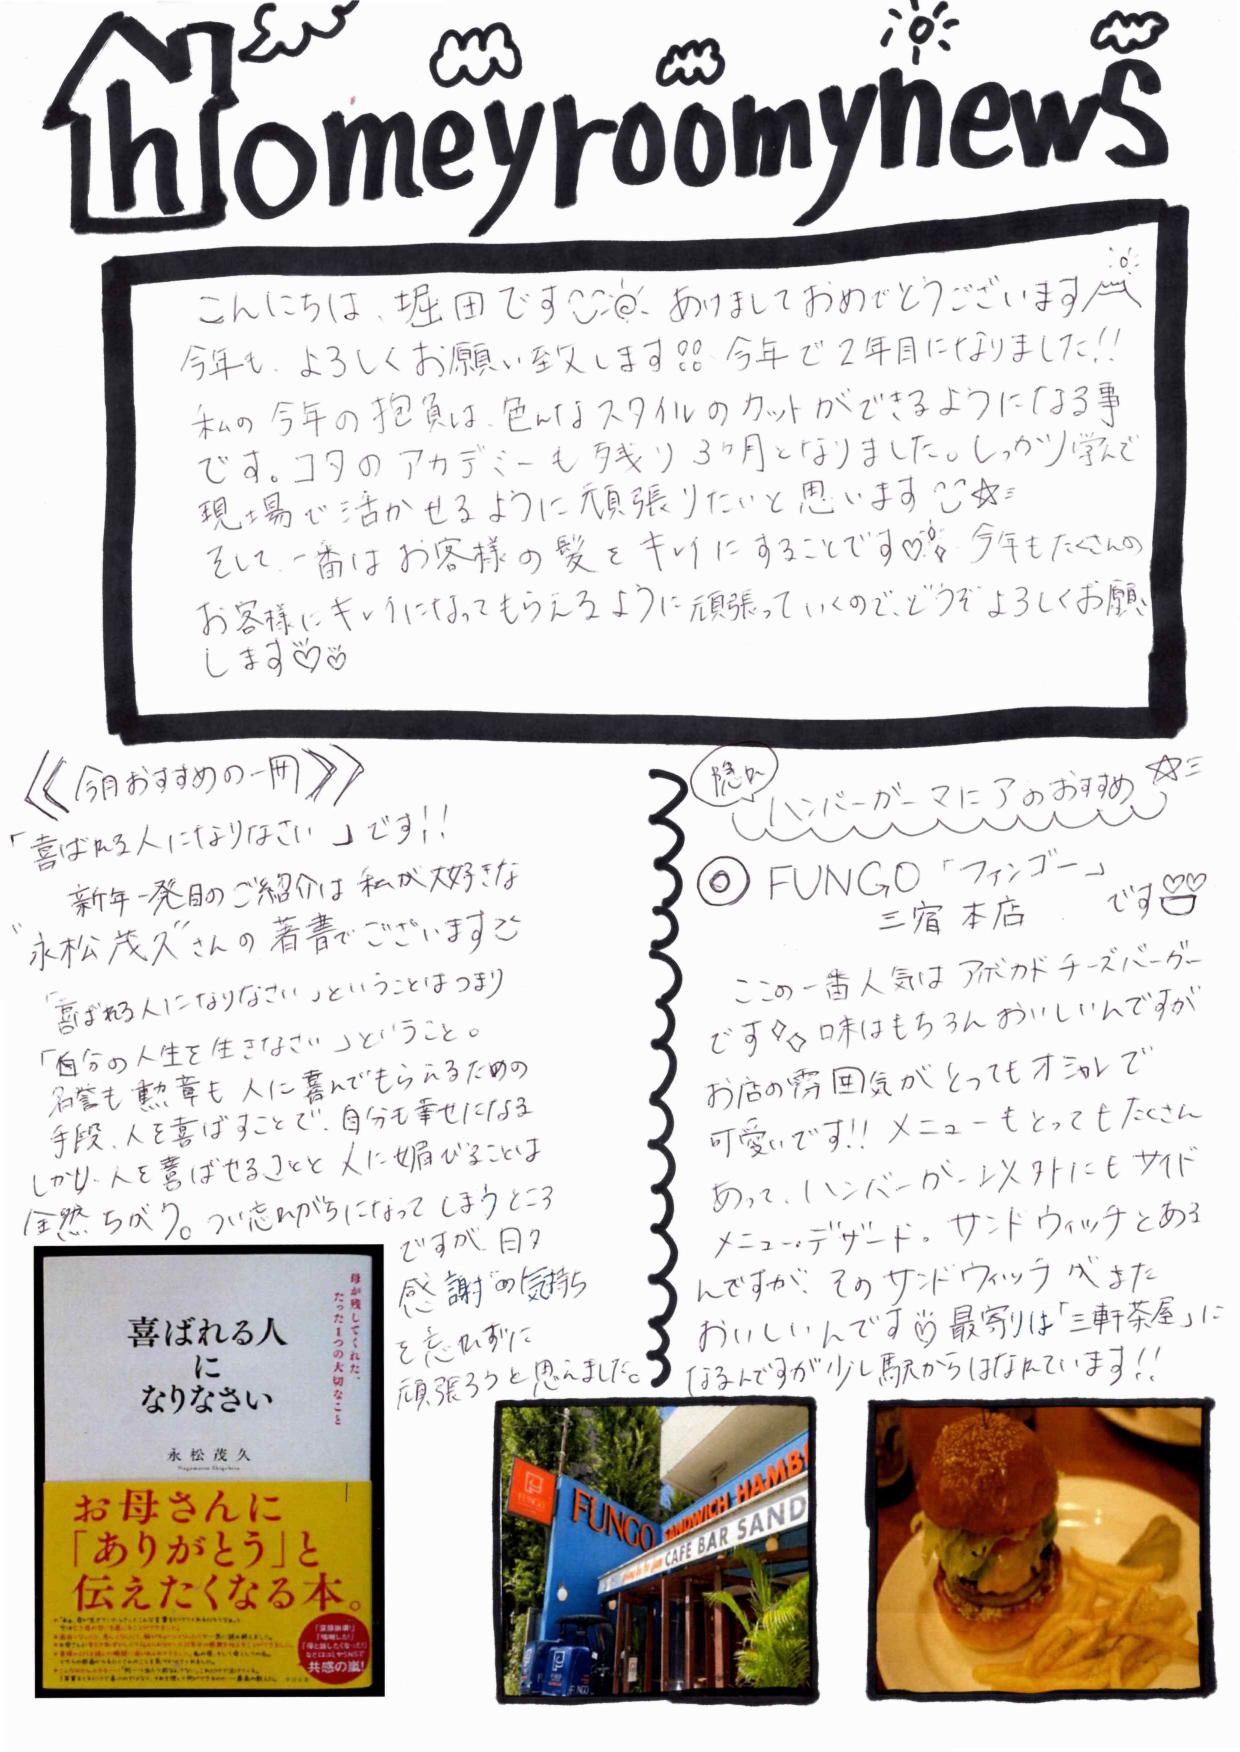 homeyroomynews
こんにちは、堀田です あけましておめでとうございます
今年も、よろしくお願い致します!! 今年で2年目になりました!!
私の今年の抱負は、色んなスタイルのカットができるようになる事
です。コタのアカデミーも残り3ヶ月となりました。しっかり学んで
現場で活かせるように頑張りたいと思います☆
そして、一番はお客様の髪をキレイにすることです♡ 今年もたくさんの
お客様にキレイになってもらえるように頑張っていくので、どうぞよろしくお願い
します♡♡
《今月おすすめの一冊》
「喜ばれる人になりなさい」です!!
新年一発目のご紹介は私が大好きな
"永松茂久"さんの著書でございます
「喜ばれる人になりなさい」ということはつまり
「自分の人生を生きなさい」ということ。
名誉も勲章も人に喜んでもらえるための
手段、人を喜ばすことで、自分も幸せになる
しかし、人を喜ばせることと人に媚びることは
全然ちがう。つい忘れがちになってしまうところ
ですが、日々
感謝の気持ち
を忘れずに
頑張ろうと思えました。
母が残してくれた、
たった1つの大切なこと
喜ばれる人
に
なりなさい
永松茂久
Nagamatsu Shigehisa
お母さんに
「ありがとう」と
伝えたくなる本。
「涙腺崩壊!」
「嗚咽した!」
「母と話したくなった!」
などと口コミやSNSで
共感の嵐!
隠れ
ハンバーガーマニアのおすすめ☆
◎ FUNGO「ファンゴー」
三宿本店 です♡♡
ここの一番人気はアボカドチーズバーガー
です 味はもちろんおいしいんですが
お店の雰囲気がとってもオシャレで
可愛いです!! メニューもとってもたくさん
あって、ハンバーガー以外にもサイド
メニュー・デザート。サンドウィッチとある
んですが、そのサンドウィッチがまた
おいしいんです 最寄りは「三軒茶屋」に
なるんですが少し駅からはなれています!!
FUNGO
FUNGO
SANDWICH HAMB
CAFE BAR SAND